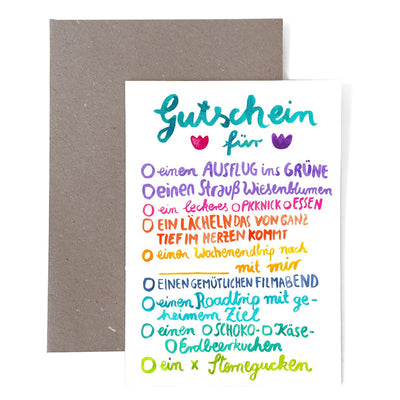 Gutschein
für
O einen AUSFLUG ins GRÜNE
O einen Strauß Wiesenblumen
O ein leckeres O PICKNICK O ESSEN
O EIN LÄCHELN DAS VON GANZ
TIEF IM HERZEN KOMMT
O einen Wochenendtrip nach
__________ mit mir
O EINEN GEMÜTLICHEN FILMABEND
O einen Roadtrip mit ge-
heimem Ziel
O einen O SCHOKO- O Käse-
O Erdbeerkuchen
O ein x Sternegucken